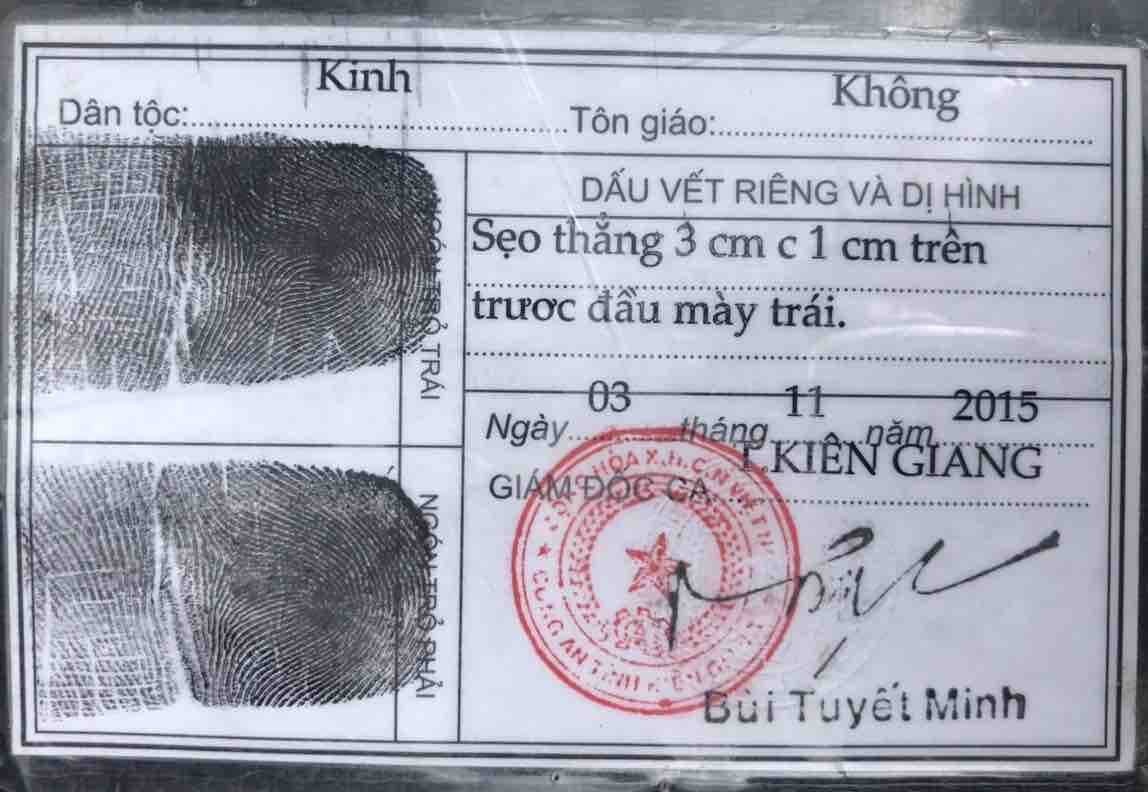 Dân tộc: Kinh Tôn giáo: Không
NGÓN TRỎ TRÁI
NGÓN TRỎ PHẢI
DẤU VẾT RIÊNG VÀ DỊ HÌNH
Sẹo thẳng 3 cm c 1 cm trên
trươc đầu mày trái.
Ngày 03 tháng 11 năm 2015
GIÁM ĐỐC CA T.KIÊN GIANG
CÔNG AN TỈNH KIÊN GIANG
Bùi Tuyết Minh